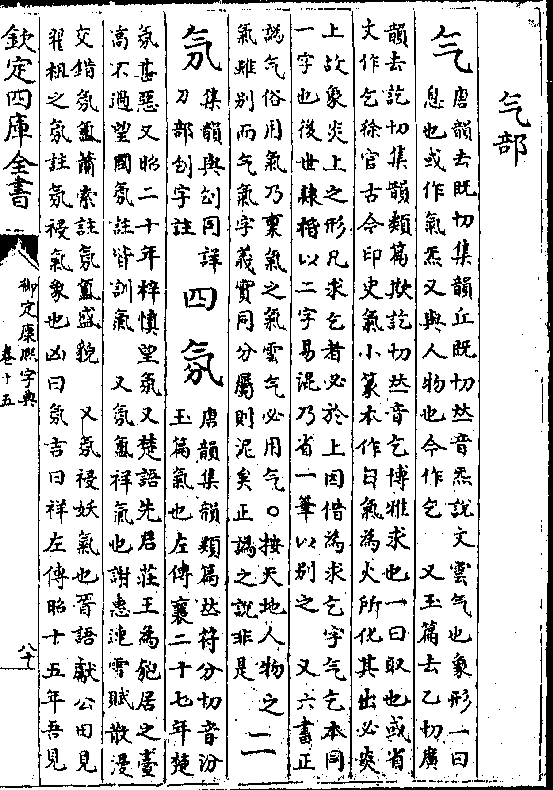 气部
气
唐韻去既切集韻丘既切𠀤音炁說文雲气也象形一曰
息也或作氣炁又與人物也今作乞 又玉篇去乙切廣
韻去訖切集韻類篇欺訖切𠀤音乞博雅求也一曰取也或省
文作乞徐官古今印史氣小篆本作氣為火所化其出必炎
上故象炎上之形凡求乞者必於上因借為求乞字气乞本同
一字也後世隸楷以二字易混乃省一筆以別之 又六書正
譌气俗用氣乃稟氣之氣雲气必用气○按天地人物之
氣雖别而气氣字義實同分屬則泥矣正譌之說非是
二
集韻與刉同詳
刀部刉字註
四
氛
唐韻集韻類篇𠀤符分切音汾
玉篇氣也左傳襄二十七年楚
氛甚惡又昭二十年梓慎望氛又楚語先君莊王為匏居之臺
高不過望國氛註皆訓氣 又氛氳祥氣也謝惠連雪賦散漫
交錯氛氳蕭索註氛氳盛貌 又氛祲妖氣也晉語獻公田見
翟柤之氛註氛祲氣象也凶曰氛吉曰祥左傳昭十五年吾見
欽定四庫全書
御定康熙字典
卷十五
八十